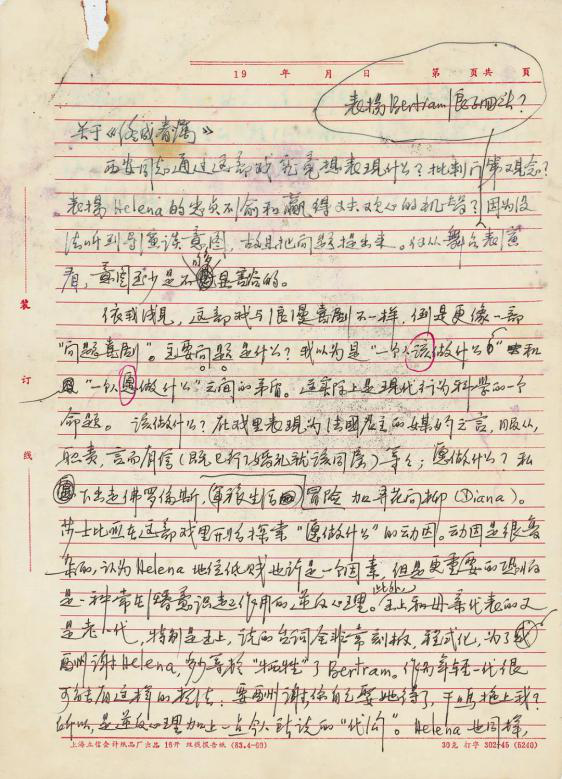 19 年 月 日 第 页共 页
表扬Bertram/
关于《终成眷属》
西安同志通过这部戏究竟想表现什么？批判门第观念？
表扬Helena的忠贞不愉和赢得丈夫欢心的机智？因为没
法听到导演谈意图，故且把问题提出来。但从舞台表演
看，意图至少是不够显豁的。
依我浅见，这部戏与浪漫喜剧不一样，倒是更像一部
“问题喜剧”。主要问题是什么？我以为是“一个人该做什么”和
“一个人愿做什么”之间的矛盾。这实际上是现代行为科学的一个
命题。该做什么？在戏里表现为法国君主的媒妁之言，服从，
职责，言而有信（既已行婚礼就该同居）等等；愿做什么？私
下出走佛罗伦斯，军旅生活 冒险加寻花问柳（Diana）。
莎士比亚在这部戏里开始探索“愿做什么”的动因。动因是很复
杂的，认为Helena地位低贱也许是一个因素，但是更重要的恐怕
是一种牵引着意识起作用的逆反心理。此外，王上和母辈代表的又
是老一代，特别是王上，说的台词全非常刻板，程式化，为了
酬谢Helena，势等于“牺牲”了Bertram。作为年轻一代很
可能有这样的想法：要酬谢你自己娶她得了，干吗拖上我？
所以，是逆反心理加上一点个人 的“代沟”。Helena也同样，
装
订
线
上海立信会计纸品厂出品 16开 双线报告纸 (83.4—60)
30克 打字 302-45 (5240)